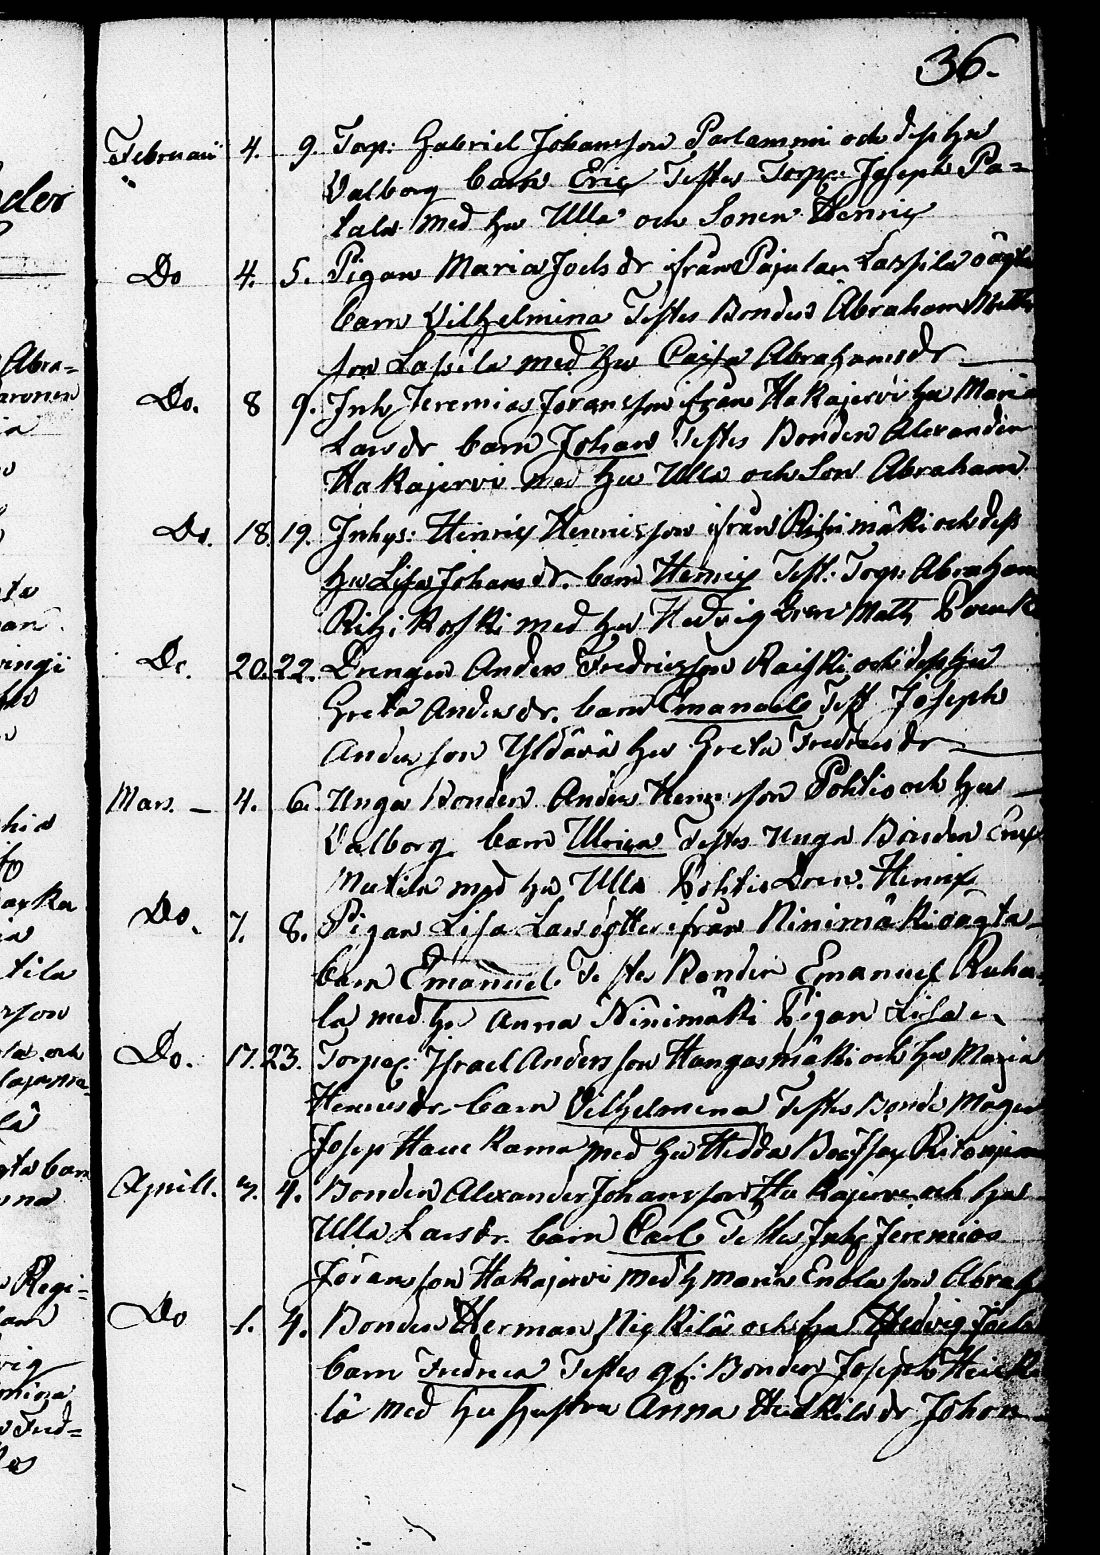 36.
Februarii 4. 9. Torp: Gabriel Johansson Parlammi och dess hu
Valborg barn Eric Testes Torp: Joseph Pa=
tala med hu Ulla och Sonen Henric
Do 4. 5. Pigan Maria Joelsdr ifrån Pajulax Lassila oägta
barn Vilhelmina Testes Bonden Abraham Matts
son Lassila med hu Caisa Abrahamsdr
Do. 8 9. Inh Jeremias Joransson ifrån Hakajervi hu Maria
Larsdr barn Johan Testes Bonden Alexander
Hakajervi med hu Ulla och Son Abraham
Do. 18. 19. Inhys: Henric Henricsson ifrån Risimäki och dess
hu Lisa Johansdr. barn Henric Test: Torp: Abraham
Rihikoski med hu Hedvig Dren Matts
Do. 20. 22. Drengen Anders Fredricsson Raiski och dess hu
Greta Andersdr. barn Emanuel Test Joseph
Andersson Yldärä hu Greta Fredricsdr
Mars. 4. 6. Unga Bonden Anders Henricsson Pohtio och hu
Valborg barn Ulrica Testes Unga Bonden Eric
Mutila med hu Ulla Pohtio Dren. Henric
Do. 7. 8. Pigan Lisa Larsdotter ifrån Ninimäki oägta
barn Emanuel. Testes Bonden Emanuel Ruha=
la med hu Anna Ninimäki Pigan Lisa
Do. 17. 23. Torpa: Israel Andersson Hangasmäki och hu Maria
Henricsdr. barn Vilhelmina Testes Bonde Mågen
Josep Hauckama med hu Hedda
Aprill. 3. 4. Bonden Alexander Johansson Hakajervi och hu
Ulla Larsdr. barn Carl Testes Inh Jeremias
Jöransson Hakajervi med h Maria Enola son Abrah
Do 1. 4. Bonden Herman Nickilä och hu Hedvig
barn Fredrica Testes gf: Bonden Joseph Heicki
lä med hu hustru Anna Heickiladr Johan